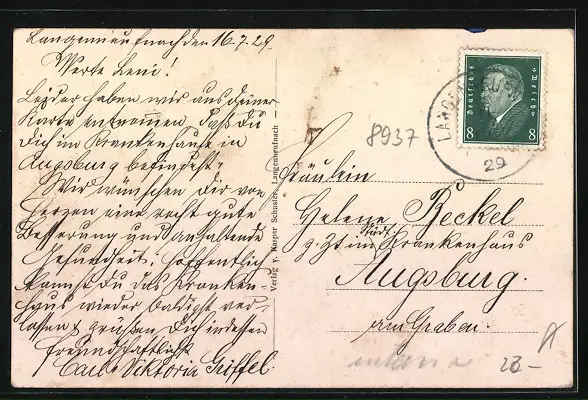 Langenneufnach den 16.7.29.
Werte Leni!
Leider haben wir aus deiner
Karte entnommen, daß du
Dich im Krankenhause in
Augsburg befindest.
Wir wünschen Dir von
Herzen eine recht gute
Besserung und anhaltende
Gesundheit. Hoffentlich
kannst Du das Kranken-
haus wieder baldigst ver-
lassen & grüßen Dich indessen
freundschaftlichst
Carl & Viktoria Griffel.
Verlag v. Kaspar Schuster, Langenneufnach
8937
Deutsches Reich
8 8
LANG
29
Fräulein
Helene Reckel
z. Zt. im städt. Krankenhaus
Augsburg.
am Graben.
28-